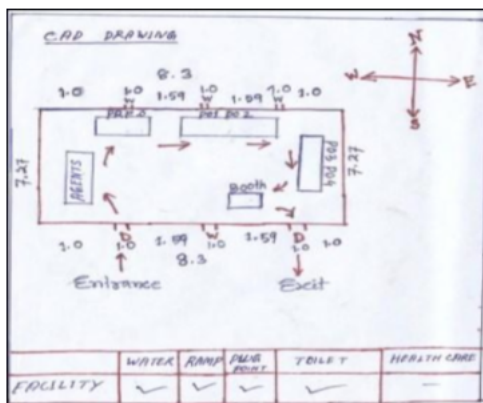 CAD DRAWING
N
W E
S
8.3
1.0 1.0 1.59 1.0 1.59 1.0 1.0
W W W
PO1 PO2
7.27
AGENTS
PO3 PO4
7.27
Booth
D W D
1.0 1.0 1.59 1.0 1.59 1.0 1.0
8.3
Entrance Exit
WATER RAMP PLUG POINT TOILET HEALTH CARE
FACILITY ✓ ✓ ✓ ✓ –